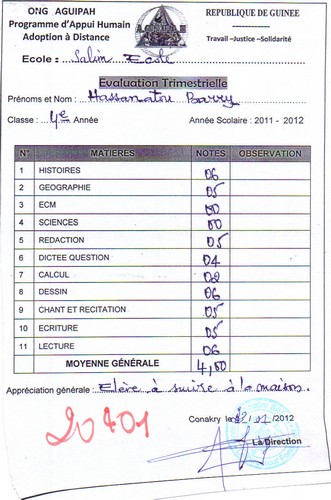 ONG AGUIPAH
Programme d'Appui Humain
Adoption à Distance
REPUBLIQUE DE GUINEE
Travail –Justice –Solidarité
Ecole : Salim Ecole
Evaluation Trimestrielle
Prénoms et Nom : Hassanatou Barry
Classe : 4e Année
Année Scolaire : 2011 - 2012
N° MATIERES NOTES OBSERVATION
1 HISTOIRES 06
2 GEOGRAPHIE 05
3 ECM 00
4 SCIENCES 00
5 REDACTION 05
6 DICTEE QUESTION 04
7 CALCUL 02
8 DESSIN 06
9 CHANT ET RECITATION 05
10 ECRITURE 05
11 LECTURE 06
MOYENNE GÉNÉRALE 4,00
Appréciation générale : Elève à suivre à la maison.
20401
Conakry le / 01 /2012
La Direction